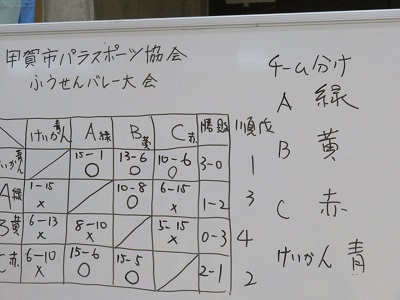 甲賀市パラスポーツ協会
ふうせんバレー大会
チーム分け
A 緑
B 黄
C 赤
けいかん 青
けいかん青 A緑 B黄 C赤 勝敗 順位
いかん青 15-1 ○ 13-6 ○ 10-6 ○ 3-0 1
A緑 1-15 × 10-8 ○ 6-15 × 1-2 3
B黄 6-13 × 8-10 × 5-15 × 0-3 4
C赤 6-10 × 15-6 ○ 15-5 ○ 2-1 2